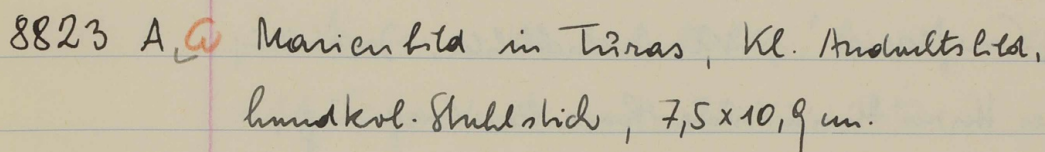 8823 A, G Marienbild in Turas, Kl. Andachtsbild,
handkol. Stahlstich, 7,5 x 10,9 cm.